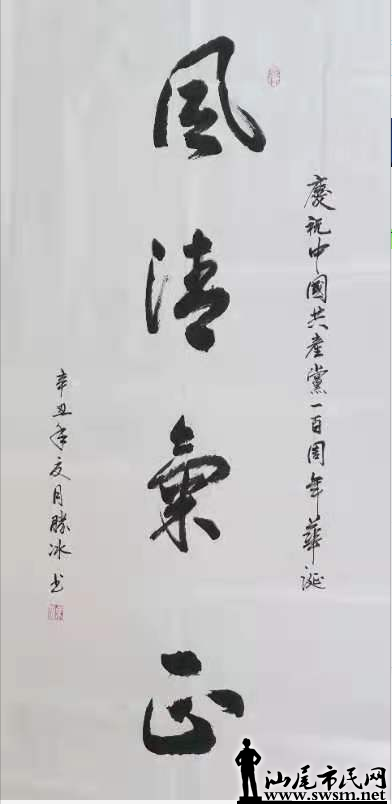 慶祝中國共產黨一百周年華誕
風清氣正
辛丑年夏月勝冰书
汕尾市民网
www.swsm.net